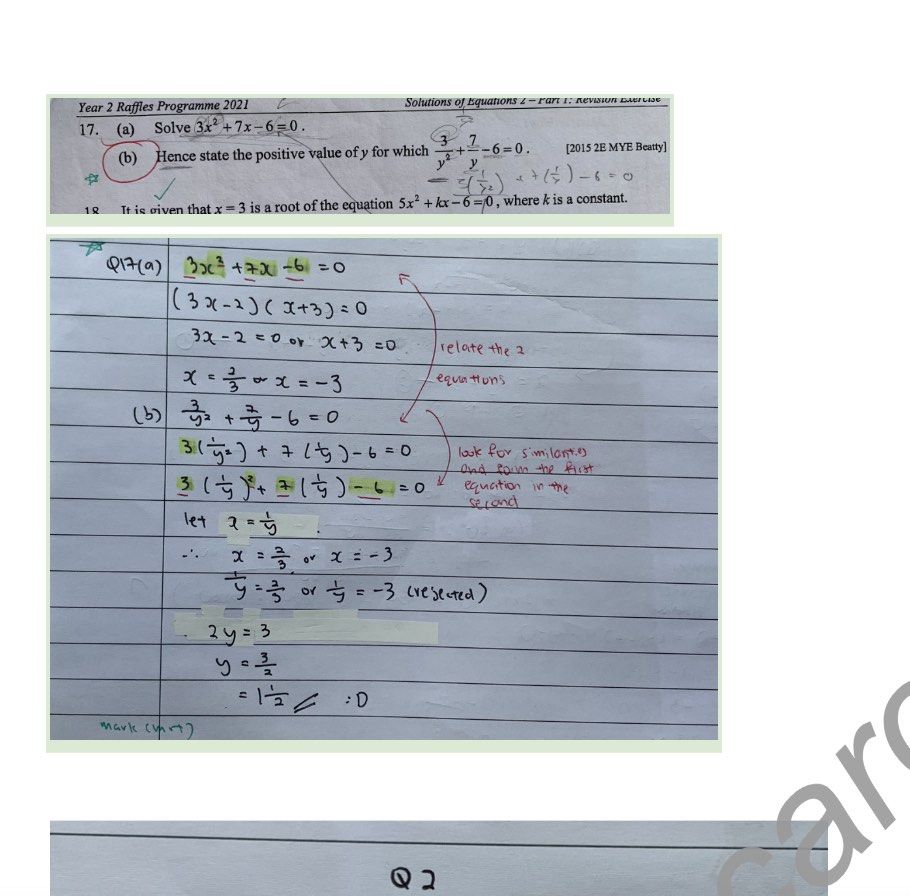 Year 2 Raffles Programme 2021 Solutions of Equations 2 – Part 1: Revision Exercise
17. (a) Solve 3x² + 7x – 6 = 0.
(b) Hence state the positive value of y for which 3/y² + 7/y – 6 = 0. [2015 2E MYE Beatty]
3(1/y²) + 7(1/y) – 6 = 0
18 It is given that x = 3 is a root of the equation 5x² + kx – 6 = 0, where k is a constant.
Q17(a) 3x² + 7x – 6 = 0
(3x – 2)(x + 3) = 0
3x – 2 = 0 or x + 3 = 0
relate the 2
equations
x = 2/3 or x = –3
(b) 3/y² + 7/y – 6 = 0
3(1/y²) + 7(1/y) – 6 = 0
3(1/y)² + 7(1/y) – 6 = 0
look for similarities
and form the first
equation in the
second
let x = 1/y
∴ x = 2/3 or x = –3
1/y = 2/3 or 1/y = –3 (rejected)
2y = 3
y = 3/2
= 1 1/2 // :D
Q2